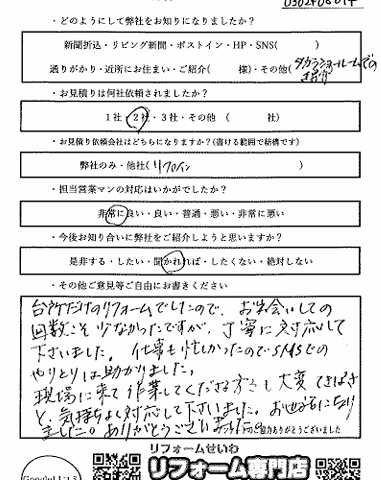 0302406014
・どのようにして弊社をお知りになりましたか？
新聞折込・リビング新聞・ポストイン・HP・SNS(　　　)
通りがかり・近所にお住まい・ご紹介(　　様)・その他(タカラショールームでの
・お見積りは何社依頼されましたか？
1社・2社・3社・その他　(　　　社)
・お見積り依頼会社はどちらになりますか？(書ける範囲で結構です)
弊社のみ・他社(リフォイン　　　)
・担当営業マンの対応はいかがでしたか？
非常に良い・良い・普通・悪い・非常に悪い
・今後お知り合いに弊社をご紹介しようと思いますか？
是非する・したい・聞かれれば・したくない・絶対しない
・その他ご意見等ご自由にお書きください
台所だけのリフォームでしたので、お出会いしての
回数こそ少なかったですが、丁寧に対応して
下さいました。仕事も忙しかったのでSMSでの
やりとりは助かりました。
現場に来て作業してくださる方も大変てきぱき
と、気持ちよく対応して下さいました。お世話になり
ました。ありがとうございました。
ご協力ありがとうございました
リフォームせいわ
リフォーム専門店